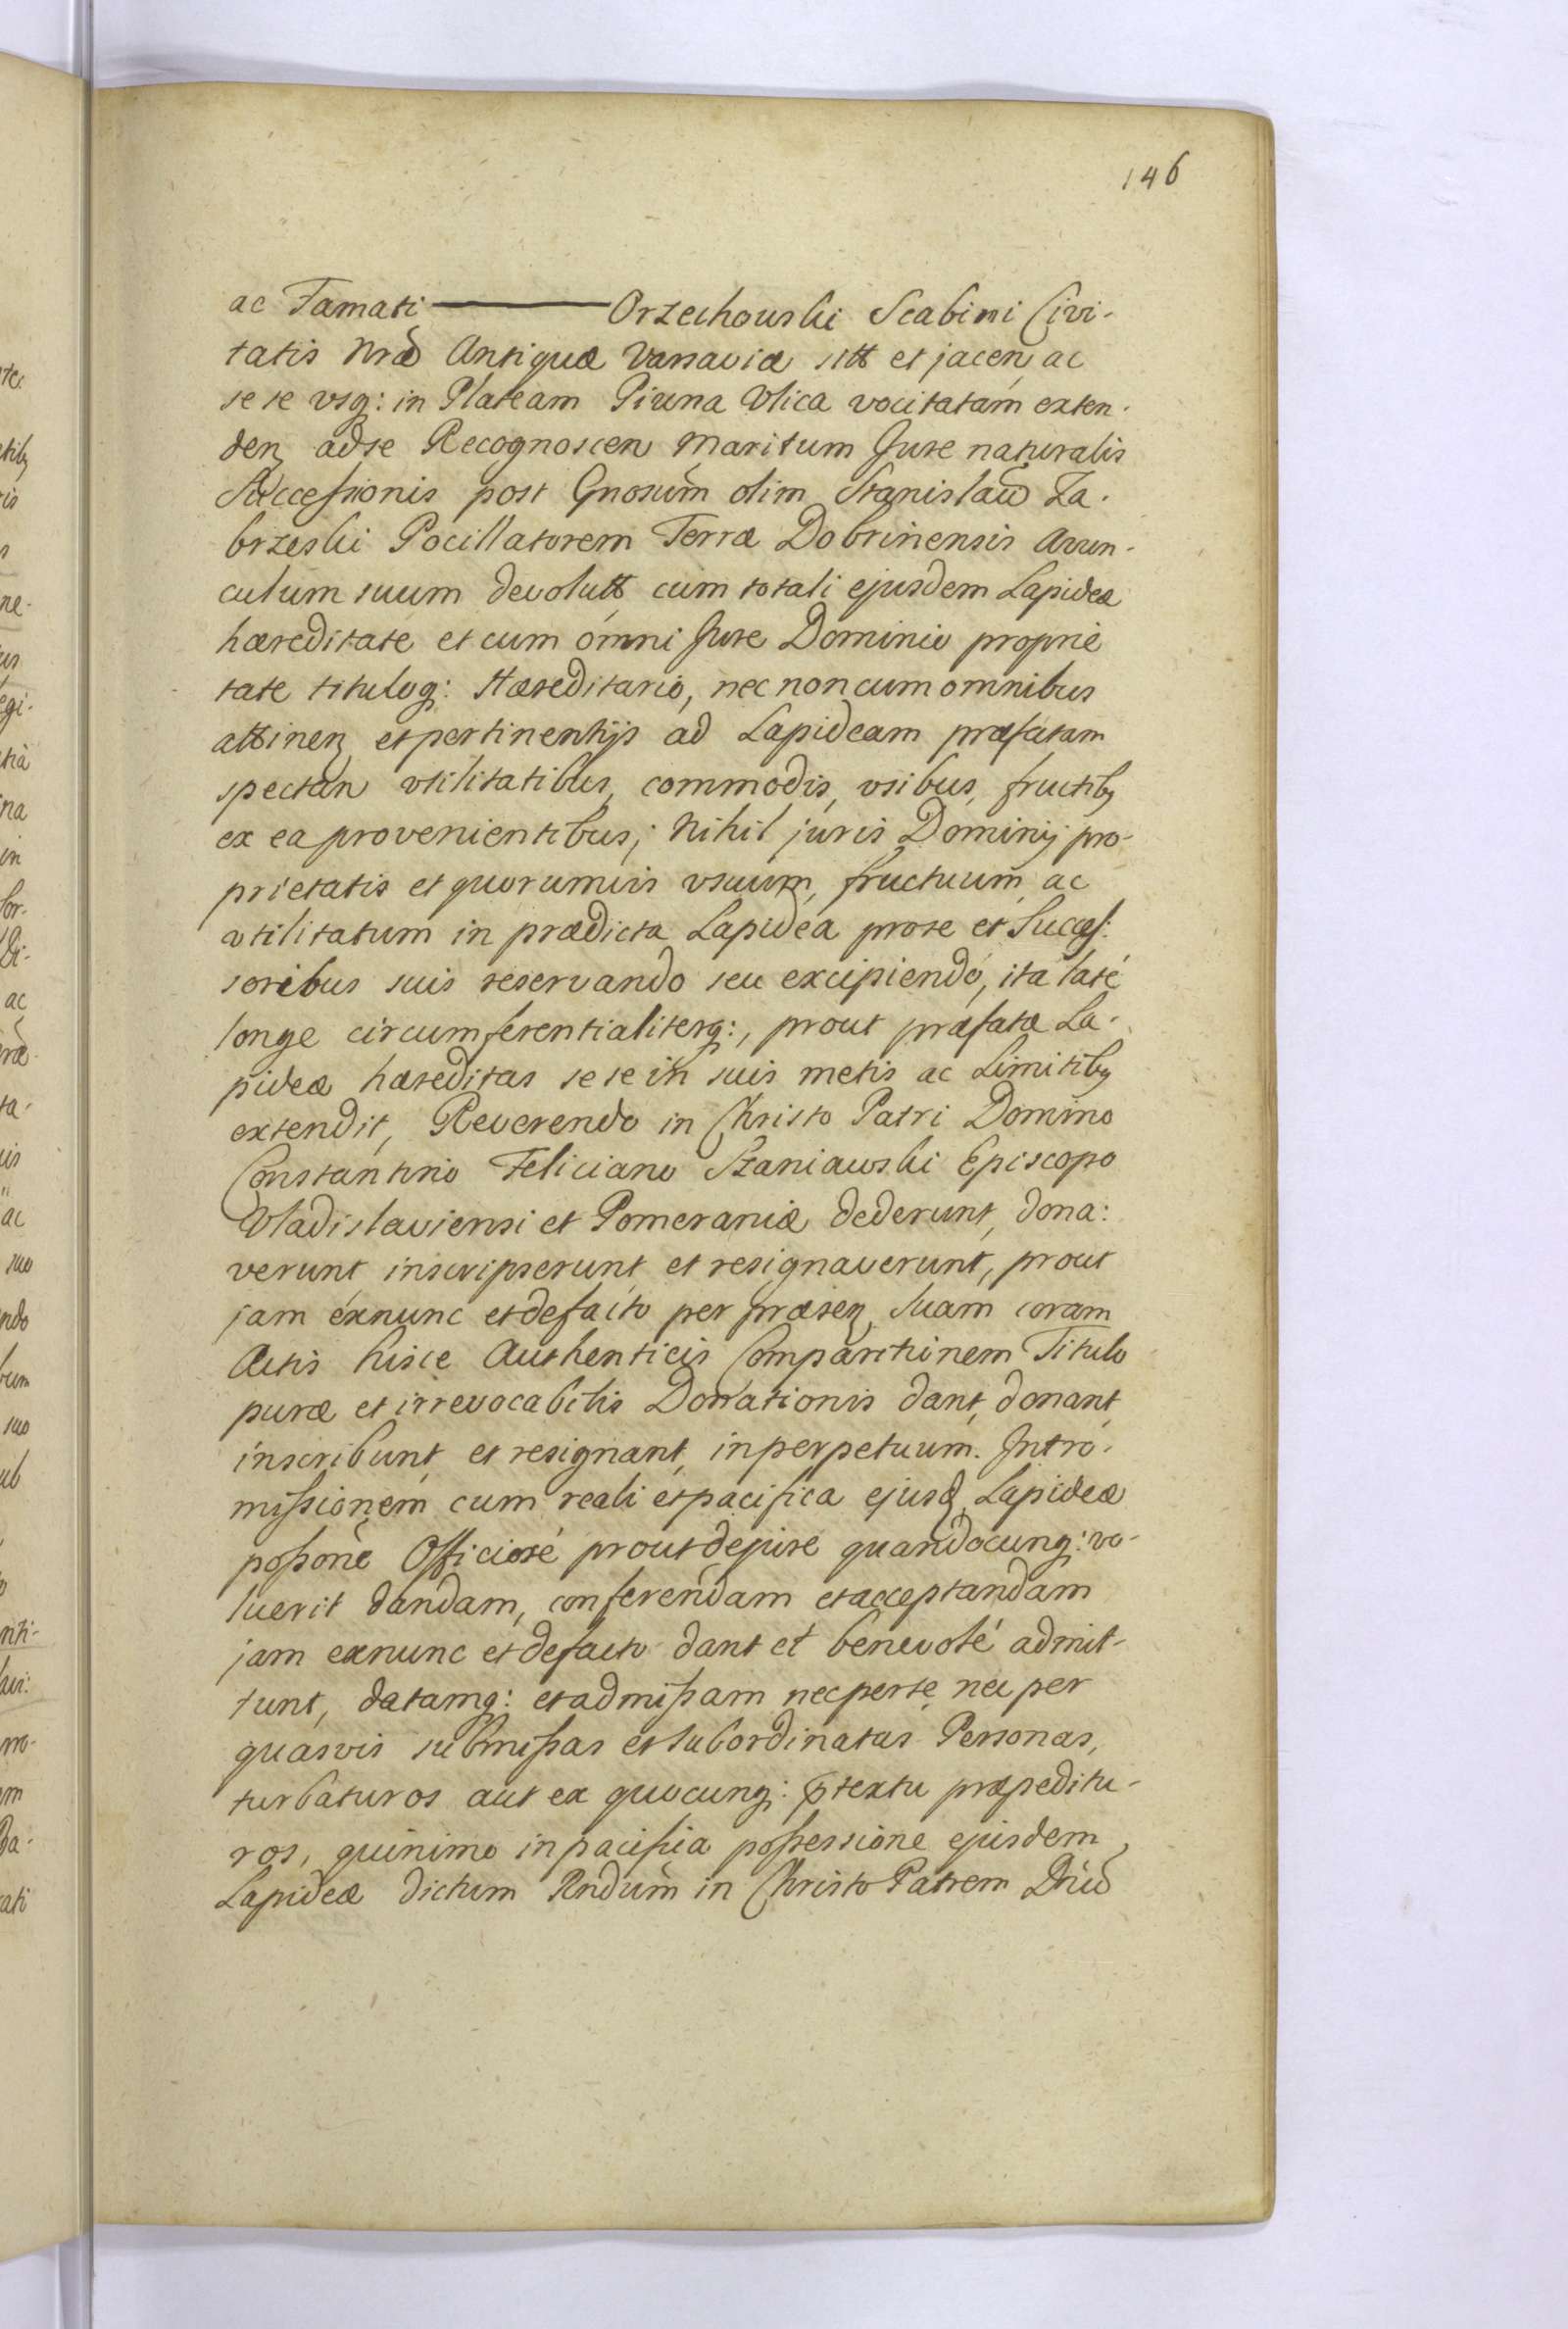 146
ac Famati ——— Orzechowski Scabini Civi-
tatis Nræ Antiquæ Varsaviæ sitt et jacen ac
se se vsq: in Plateam Piwna Vlica vocitatam exten-
den adse Recognoscen Maritum Jure naturalis
Successionis post Gnosum olim Stanislaũ Za-
brzeski Pocillatorem Terræ Dobrinensis Avun-
culum suum devolutt cum totali ejusdem Lapideæ
hæreditate et cum omni Jure Dominio proprie
tate tituloq: Hæreditario, nec non cum omnibus
attinen et pertinentijs ad Lapideam præfatam
spectan vtilitatibus, commodis, vsibus, fructibq
ex ea provenientibus; Nihil juris Dominij pro-
prietatis et quorumvis vsuum, fructuum, ac
vtilitatum in prædicta Lapidea prose et Succes:
soribus suis reservando seu excipiendo, ita laté
longe circumferentialiterq:, prout præfatæ La-
pideæ hæreditas se se in suis metis ac Limitibq
extendit, Reverendo in Christo Patri Domino
Constantino Feliciano Szaniawski Episcopo
Vladislaviensi et Pomeraniæ dederunt, dona:
verunt inscripserunt et resignaverunt, prout
jam exnunc et defacto per præsen Suam coram
Actis hisce Authenticis Comparitionem Titulo
puræ et irrevocabilis Donationis dant, donant
inscribunt et resignant, inperpetuum. Intro-
missionem cum reali et pacifica ejusd Lapideæ
possone Officiosé prout dejure quandocunq: vo-
luerit dandam, conferendam et acceptandam
jam exnunc et defacto dant et benevolé admit-
tunt, datamq: et admissam nec perse nec per
quasvis submissas et subordinatas Personas,
turbaturos aut ex quocunq: ꝑtextu præpeditu-
ros, quinimo in pacifica possessione ejusdem
Lapideæ dictum Rndum in Christo Patrem Dnũ